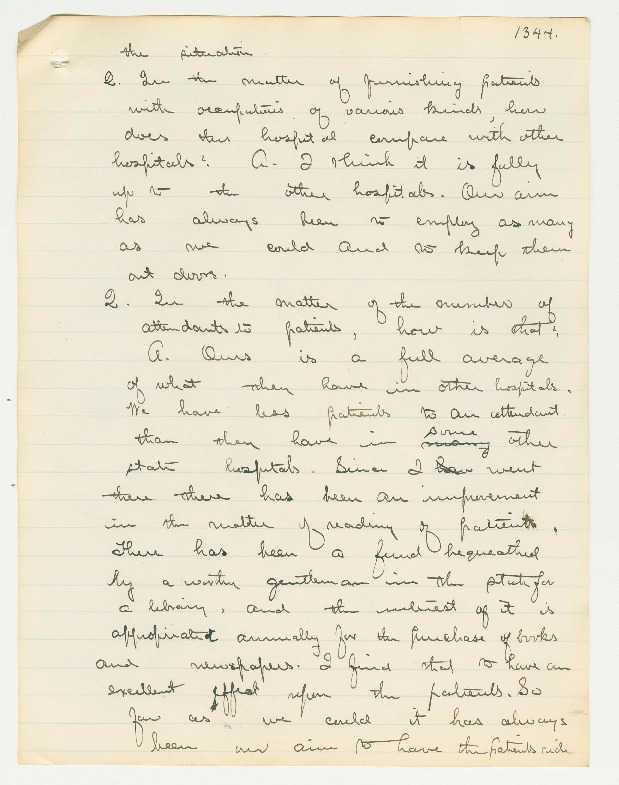 1344.
the situation.
Q. In the matter of furnishing patients
with occupations of various kinds, how
does this hospital compare with other
hospitals? A. I think it is fully
up to the other hospitals. Our aim
has always been to employ as many
as we could and to keep them
out doors.
Q. In the matter of the number of
attendants to patients, how is that?
A. Ours is a full average
of what they have in other hospitals.
We have less patients to an attendant
than they have in some many other
state hospitals. Since I went
there there has been an improvement
in the matter of reading of patients.
There has been a fund bequeathed
by a worthy gentleman in the state for
a library, and the interest of it is
appropriated annually for the purchase of books
and newspapers. I find that to have an
excellent effect upon the patients. So
far as we could it has always
been our aim to have the patients ride